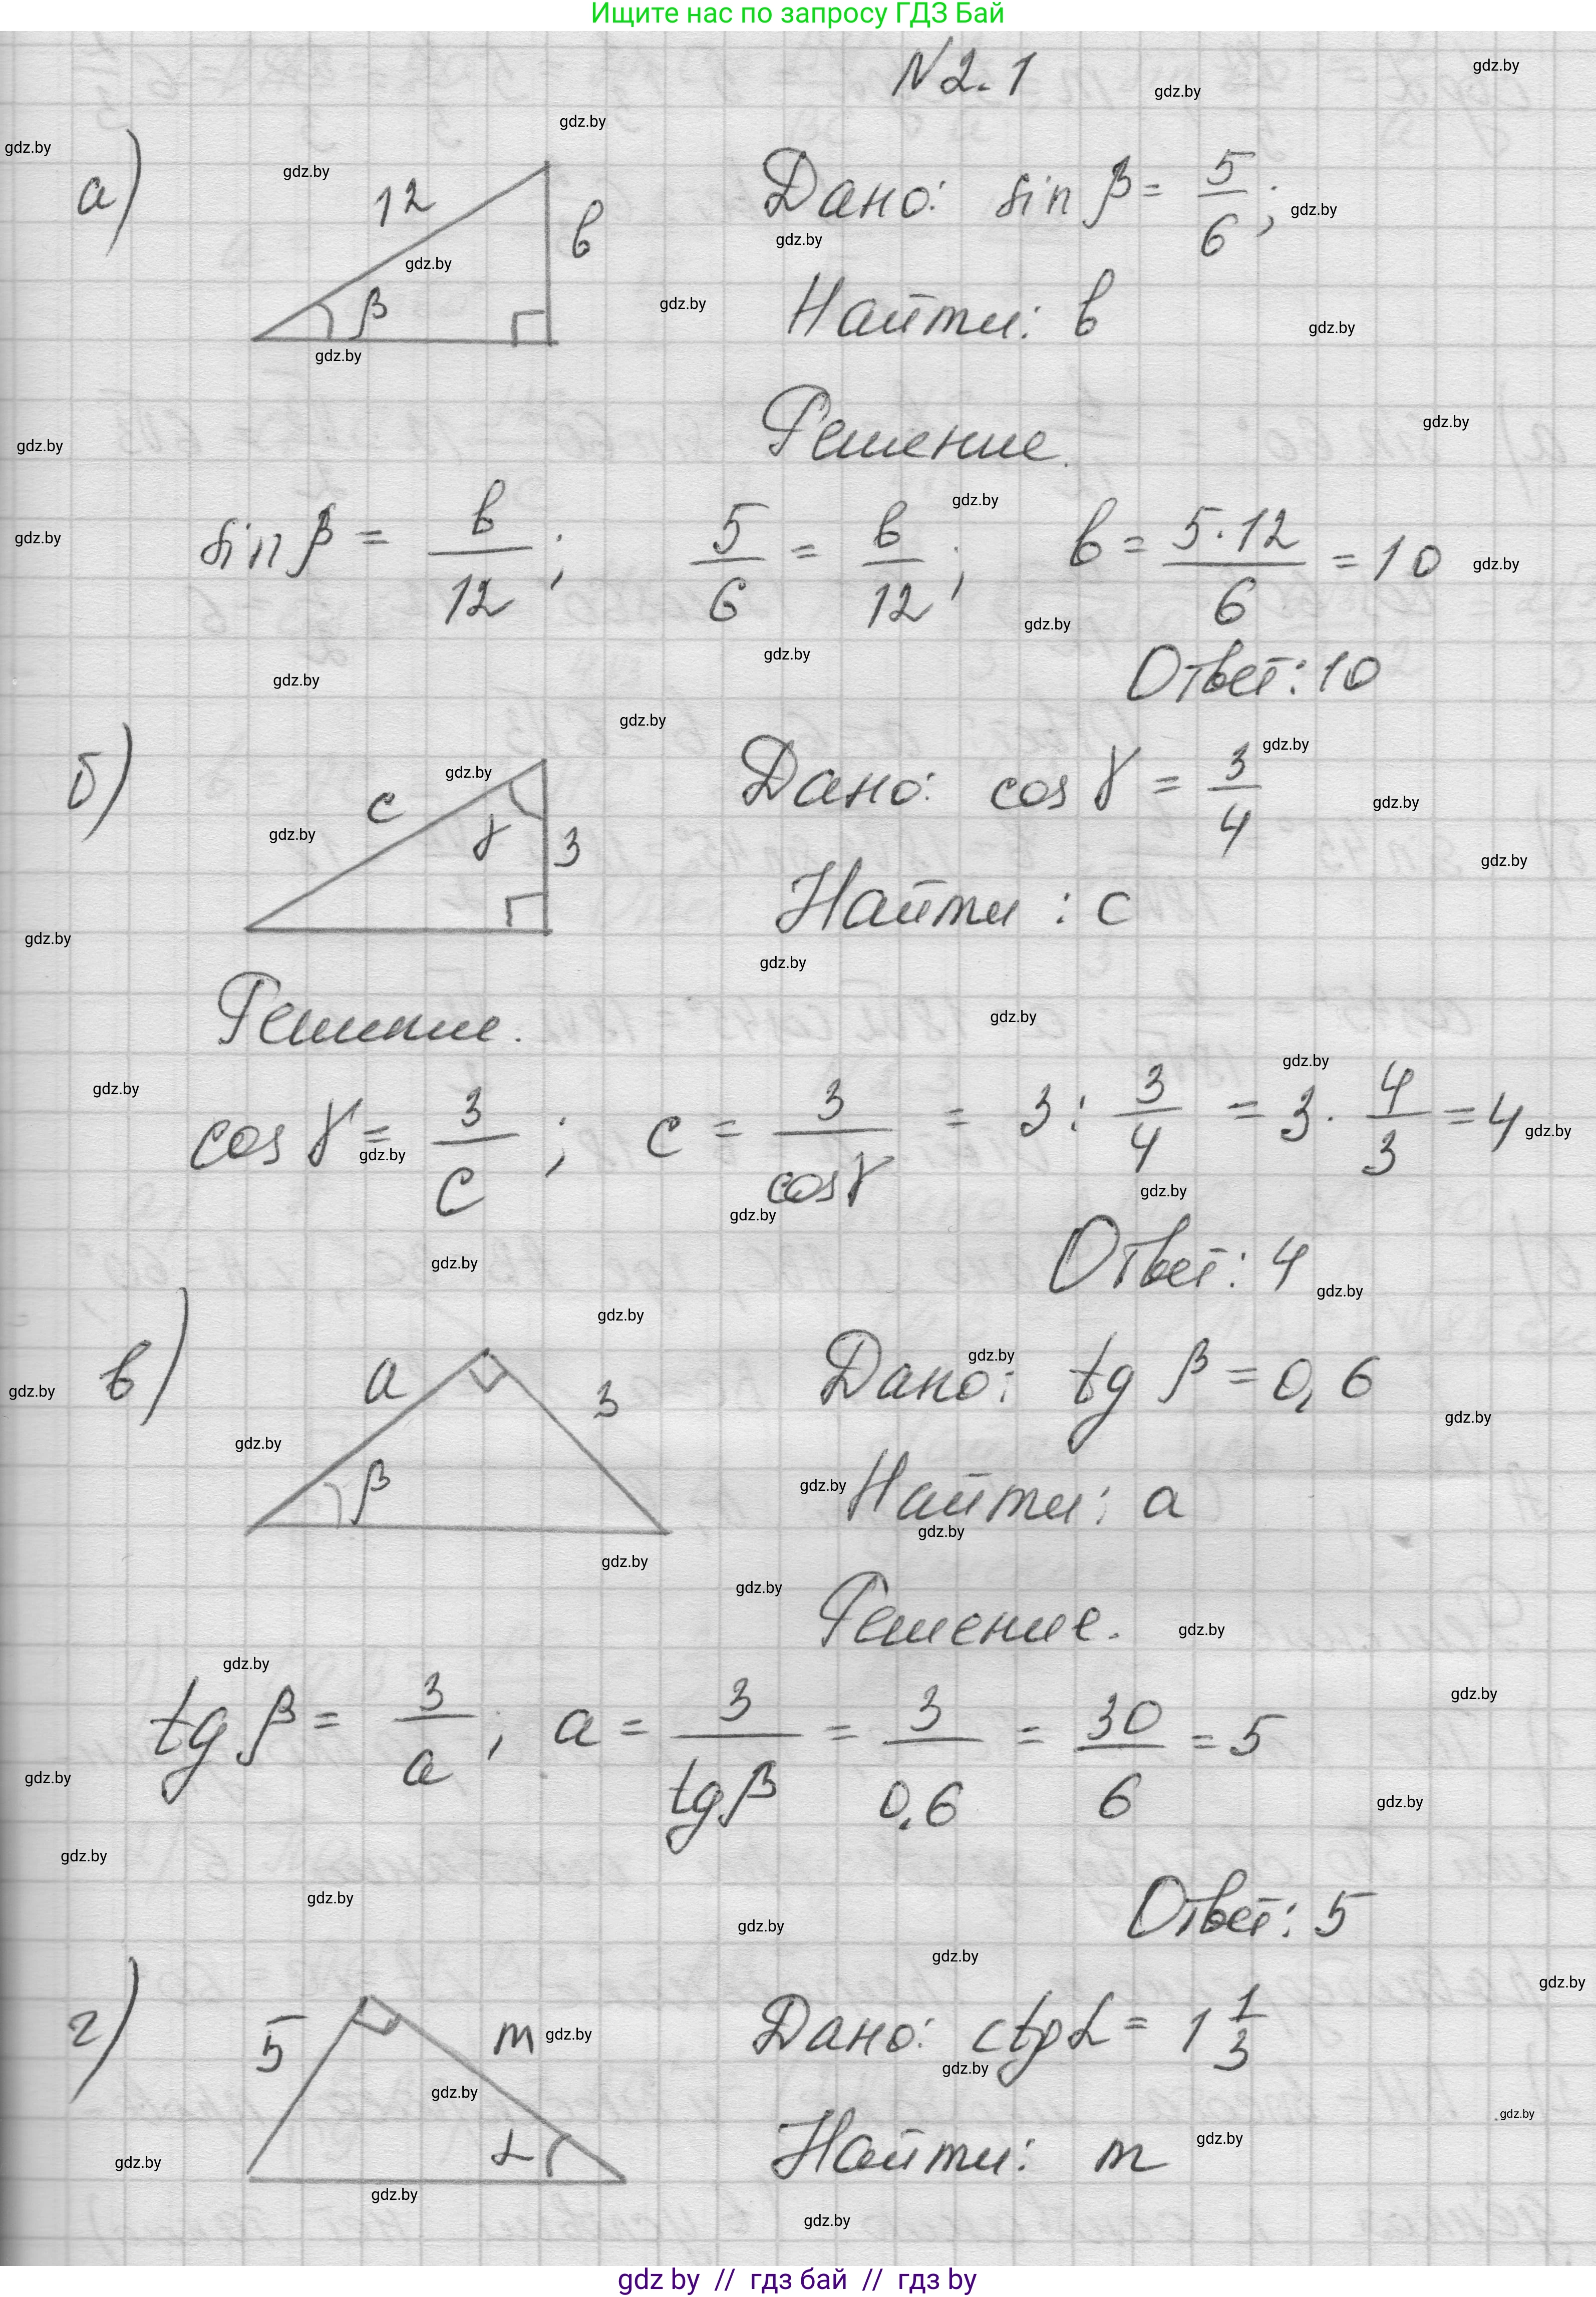 Ищите нас по запросу ГДЗ Бай
N 2.1
а) 12 β в
Дано: sin β = 5/6;
Найти: в
Решение.
sin β = в/12; 5/6 = в/12; в = 5·12/6 = 10
Ответ: 10
б) c γ 3
Дано: cos γ = 3/4
Найти: c
Решение.
cos γ = 3/c; c = 3/cos γ = 3 : 3/4 = 3 · 4/3 = 4
Ответ: 4
в) a 3 β
Дано: tg β = 0,6
Найти: a
Решение.
tg β = 3/a, a = 3/tg β = 3/0,6 = 30/6 = 5
Ответ: 5
г) 5 m α
Дано: ctg α = 1 1/3
Найти: m
gdz by // гдз бай // гдз by
gdz.by